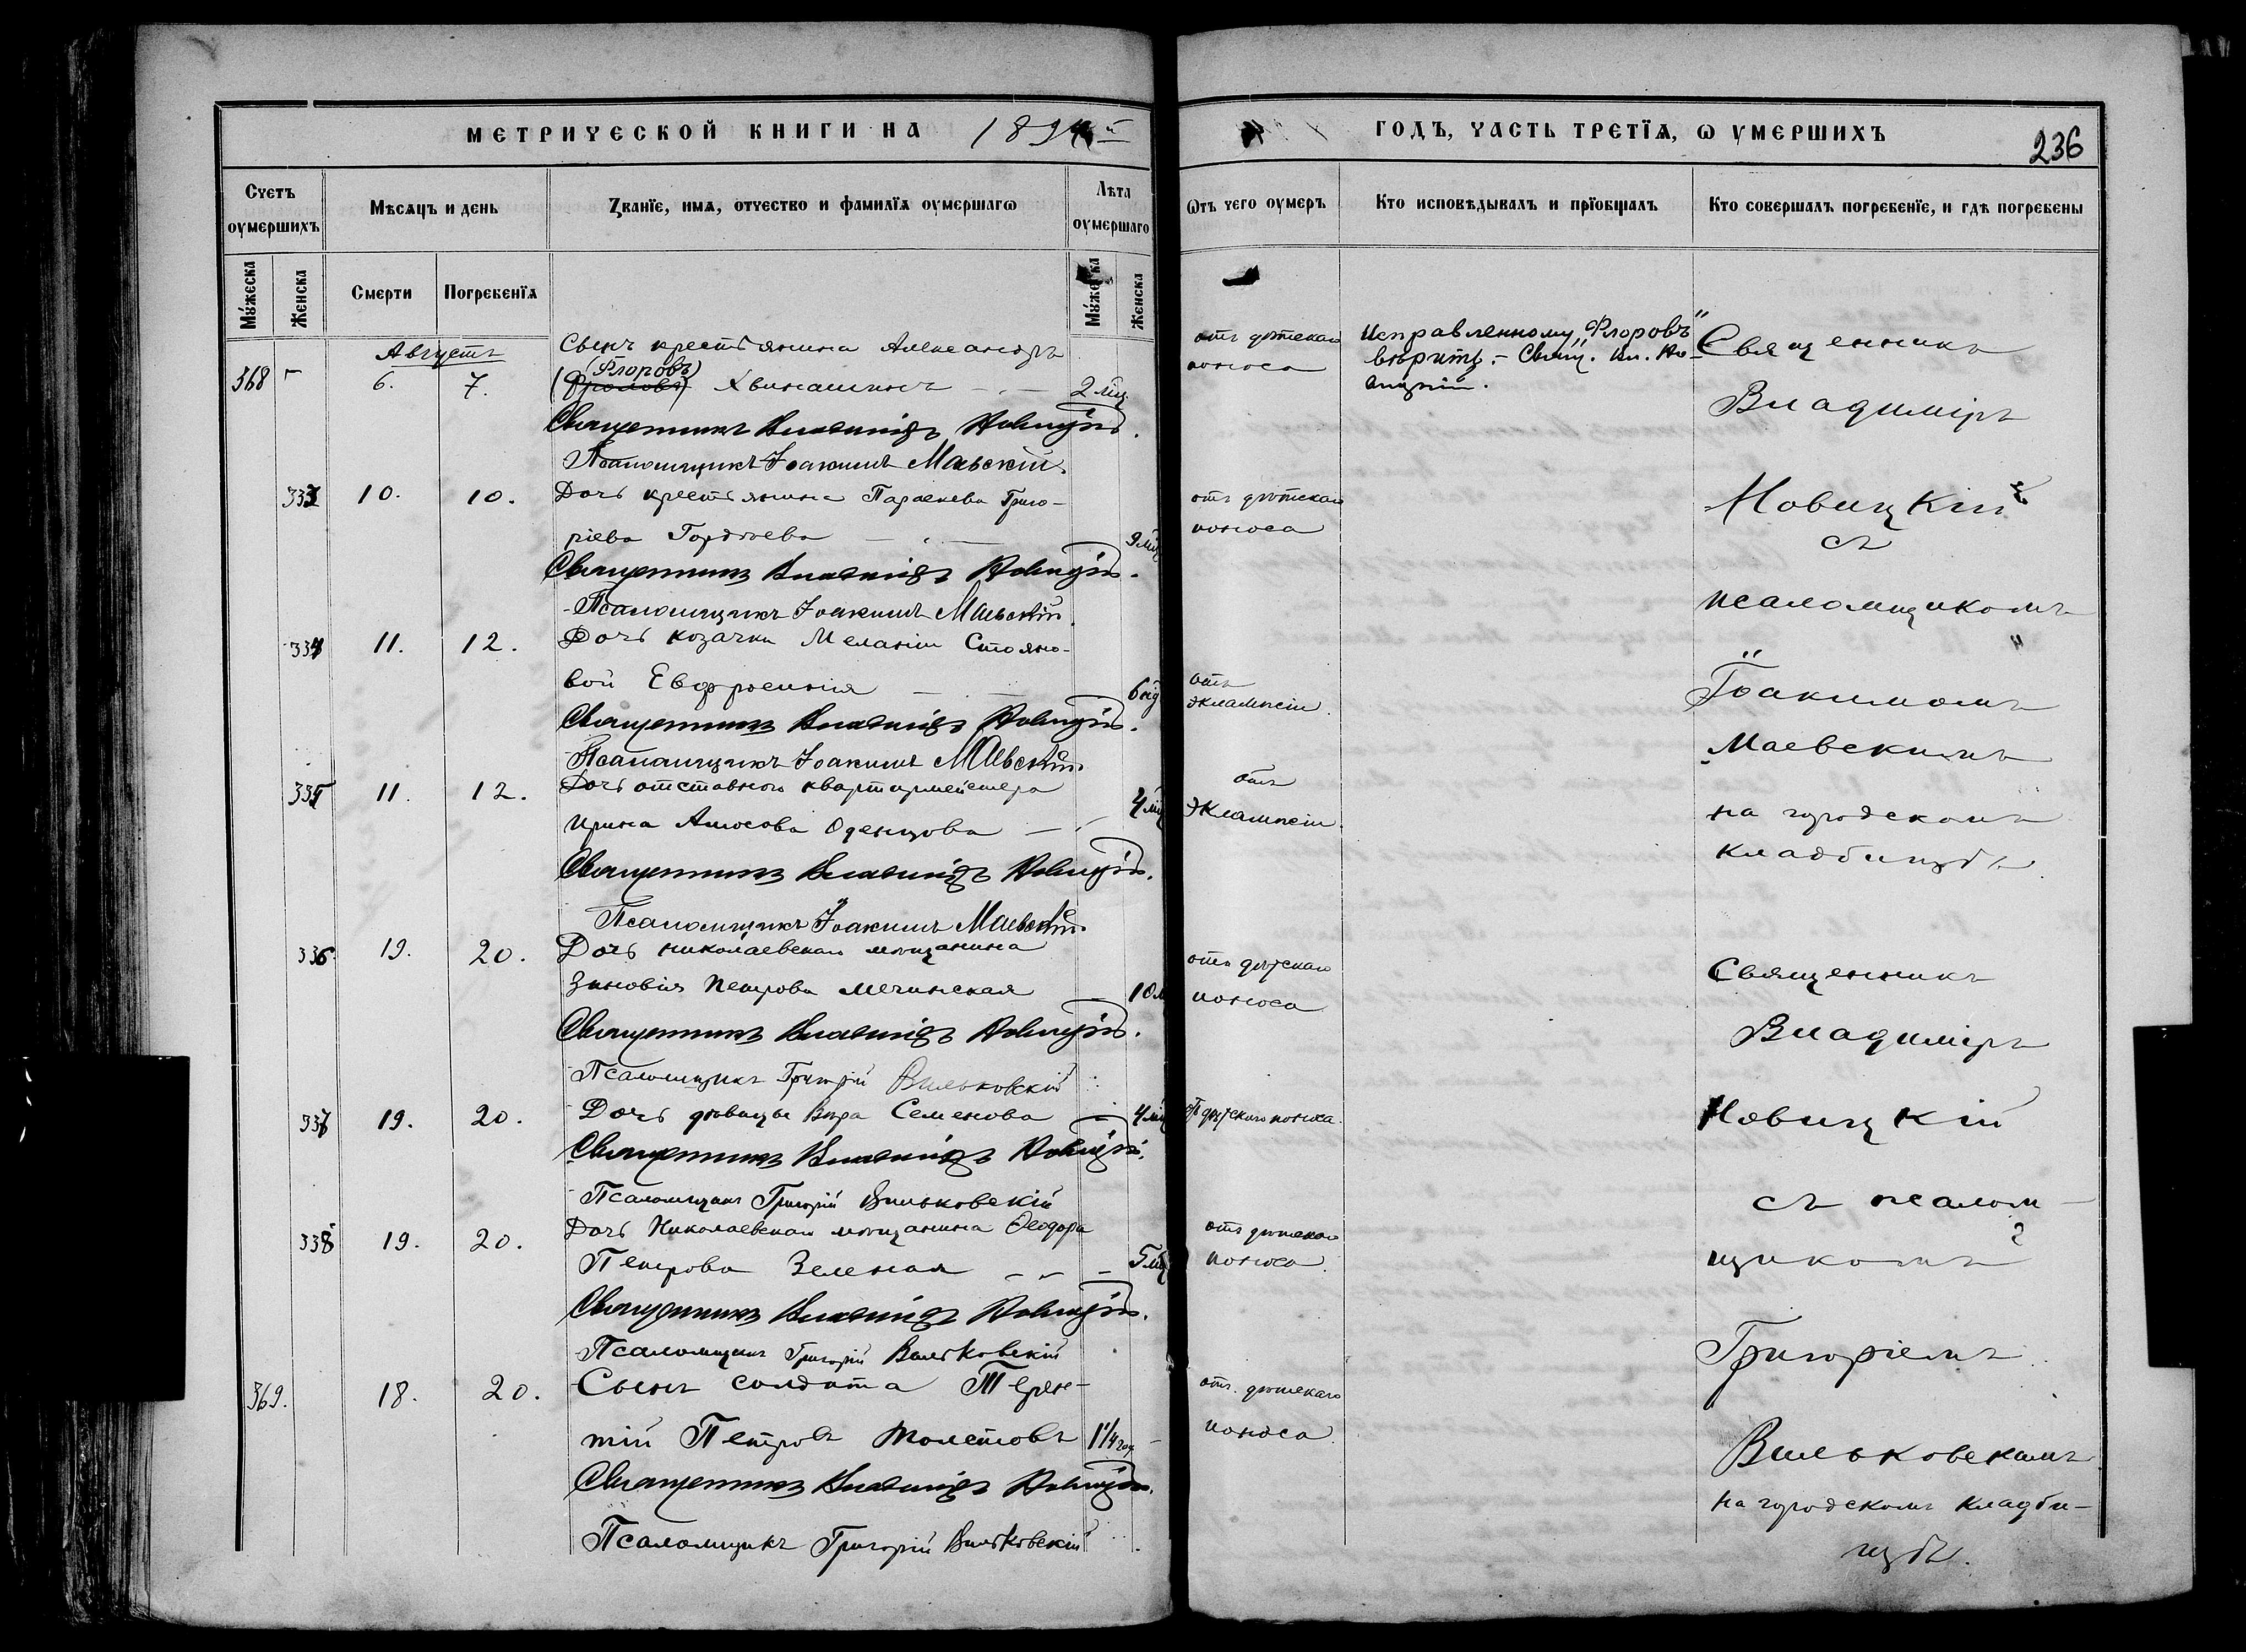 МЕТРИЧЕСКОЙ КНИГИ НА 1894й
ГОДЪ, ЧАСТЬ ТРЕТІѦ, Ѡ УМЕРШИХЪ
236
Счетъ оумершихъ
Мѣсяцъ и день
Званіе, имѧ, отчество и фамиліѧ оумершагѡ
Лѣта оумершаго
Ѿъ чего оумеръ
Кто исповѣдывалъ и пріобщалъ
Кто совершалъ погребеніе, и гдѣ погребены
Мужеска
Женска
Смерти
Погребеніѧ
Мужеска
Женска
Августъ
Сынъ крестьянина Александръ
(Флоровъ)
368 6. 7. (Фроловъ) Хвинашинъ 2 мѣс.
отъ дѣтскаго
поноса
Исправленному "Флоровъ"
вѣрить. – Свящ. Вл. Но-
вицкій.
Священникъ Владиміръ Новицкій.
Псаломщикъ Іоакимъ Маевскій.
333 10. 10. Дочь крестьянина Параскева Григо-
ріева Гордѣева 9 мѣс
отъ дѣтскаго
поноса
Священникъ Владиміръ Новицкій.
Псаломщикъ Іоакимъ Маевскій.
334 11. 12. Дочь козачки Меланіи Стояно-
вой Евфросинія
отъ
экламписіи.
Священникъ Владиміръ Новицкій.
Псаломщикъ Іоакимъ Маевскій.
335 11. 12. Дочь отставного квартирмейстера
Ирина Амосова Оденцова 4 мѣс
отъ
Экламписіи.
Священникъ Владиміръ Новицкій.
Псаломщикъ Іоакимъ Маевскій.
Священникъ
Владиміръ
Новицкій
съ
псаломщикомъ
Іоакимомъ
Маевскимъ
на городскомъ
кладбищѣ.
336 19. 20. Дочь николаевскаго мѣщанина
Зиновія Петрова Мечинская 10 м
отъ дѣтскаго
поноса
Священникъ Владиміръ Новицкій.
Псаломщикъ Григорій Вильковскій
337 19. 20. Дочь дѣвицы Вѣра Семенова 4 мѣс
отъ дѣтскаго поноса.
Священникъ Владиміръ Новицкій.
Псаломщикъ Григорій Вильковскій
338 19. 20. Дочь Николаевскаго мѣщанина Ѳеодора
Петрова Зеленая 5 мѣс
отъ дѣтскаго
поноса.
Священникъ Владиміръ Новицкій.
Псаломщикъ Григорій Вильковскій
369. 18. 20. Сынъ солдата Терен-
тій Петровъ Молетовъ 1 1/4 год.
отъ дѣтскаго
поноса.
Священникъ Владиміръ Новицкій.
Псаломщикъ Григорій Вильковскій
Священникъ
Владиміръ
Новицкій
съ псалом-
щикомъ
Григоріемъ
Вильковскимъ
на городскомъ кладби-
щѣ.